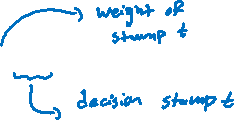 weight of
stump t
decision stump t